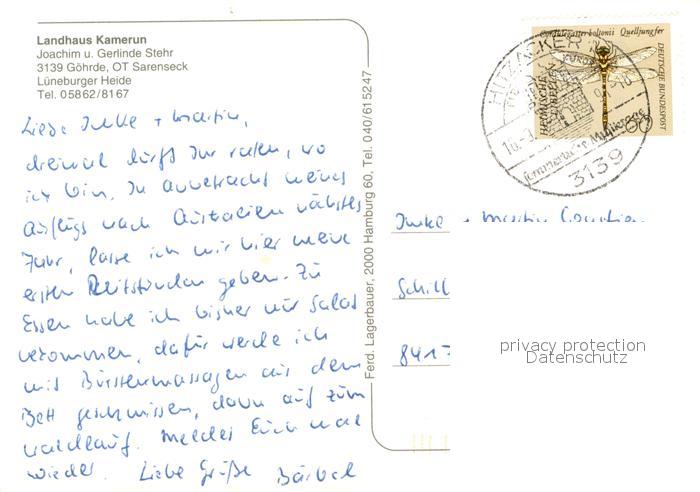 Landhaus Kamerun
Joachim u. Gerlinde Stehr
3139 Göhrde, OT Sarenseck
Lüneburger Heide
Tel. 05862/8167
Liebe Imke + Martin,
dreimal dürft Ihr raten, wo
ich bin. In Anbetracht meines
Ausflugs nach Australien nächstes
Jahr, lasse ich mir hier meine
ersten Reitstunden geben. Zu
Essen habe ich bisher nur Salat
bekommen, dafür werde ich
mit Bürstenmassagen aus dem
Bett geschmissen, dann auf zum
Waldlauf. Meldet Euch mal
wieder. Liebe Grüße Bärbel
Ferd. Lagerbauer, 2000 Hamburg 60, Tel. 040/615247
Cordulegaster boltonii Quelljungfer
DEUTSCHE BUNDESPOST
HEIMISCHE LIBELLEN
60
HITZACKER
3139
Imke + Martin
Schill
8417
privacy protection
Datenschutz